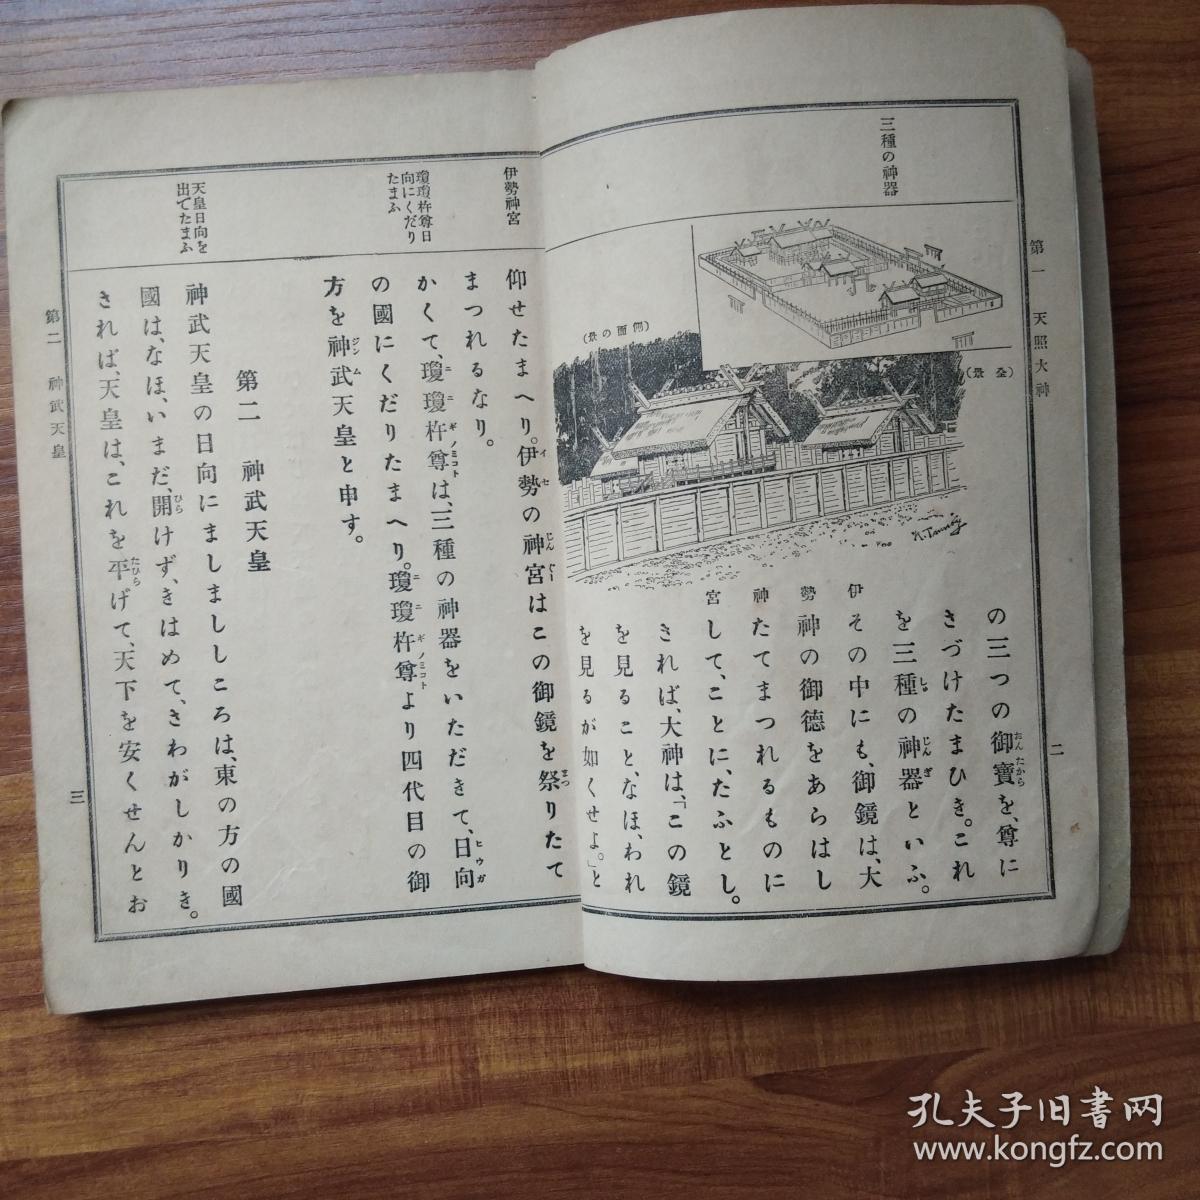 第一 天照大神
二
三種の神器
(全景)
(側面の景)
伊勢神宮
の三つの御寶を、尊に
さづけたまひき。これ
を三種の神器といふ。
その中にも、御鏡は、大
神の御德をあらはし
たてまつれるものに
して、ことに、たふとし。
されば、大神は、「この鏡
を見ること、なほ、われ
を見るが如くせよ。」と
伊勢神宮
瓊瓊杵尊日
向にくだり
たまふ
天皇日向を
出でたまふ
仰せたまへり。伊勢の神宮はこの御鏡を祭りたて
まつれるなり。
かくて、瓊瓊杵尊は、三種の神器をいただきて、日向
の國にくだりたまへり。瓊瓊杵尊より四代目の御
方を神武天皇と申す。
第二 神武天皇
神武天皇の日向にましまししころは、東の方の國
國は、なほ、いまだ、開けず、きはめて、さわがしかりき。
されば、天皇は、これを平げて、天下を安くせんとお
第二 神武天皇
三
孔夫子旧書网
www.kongfz.com